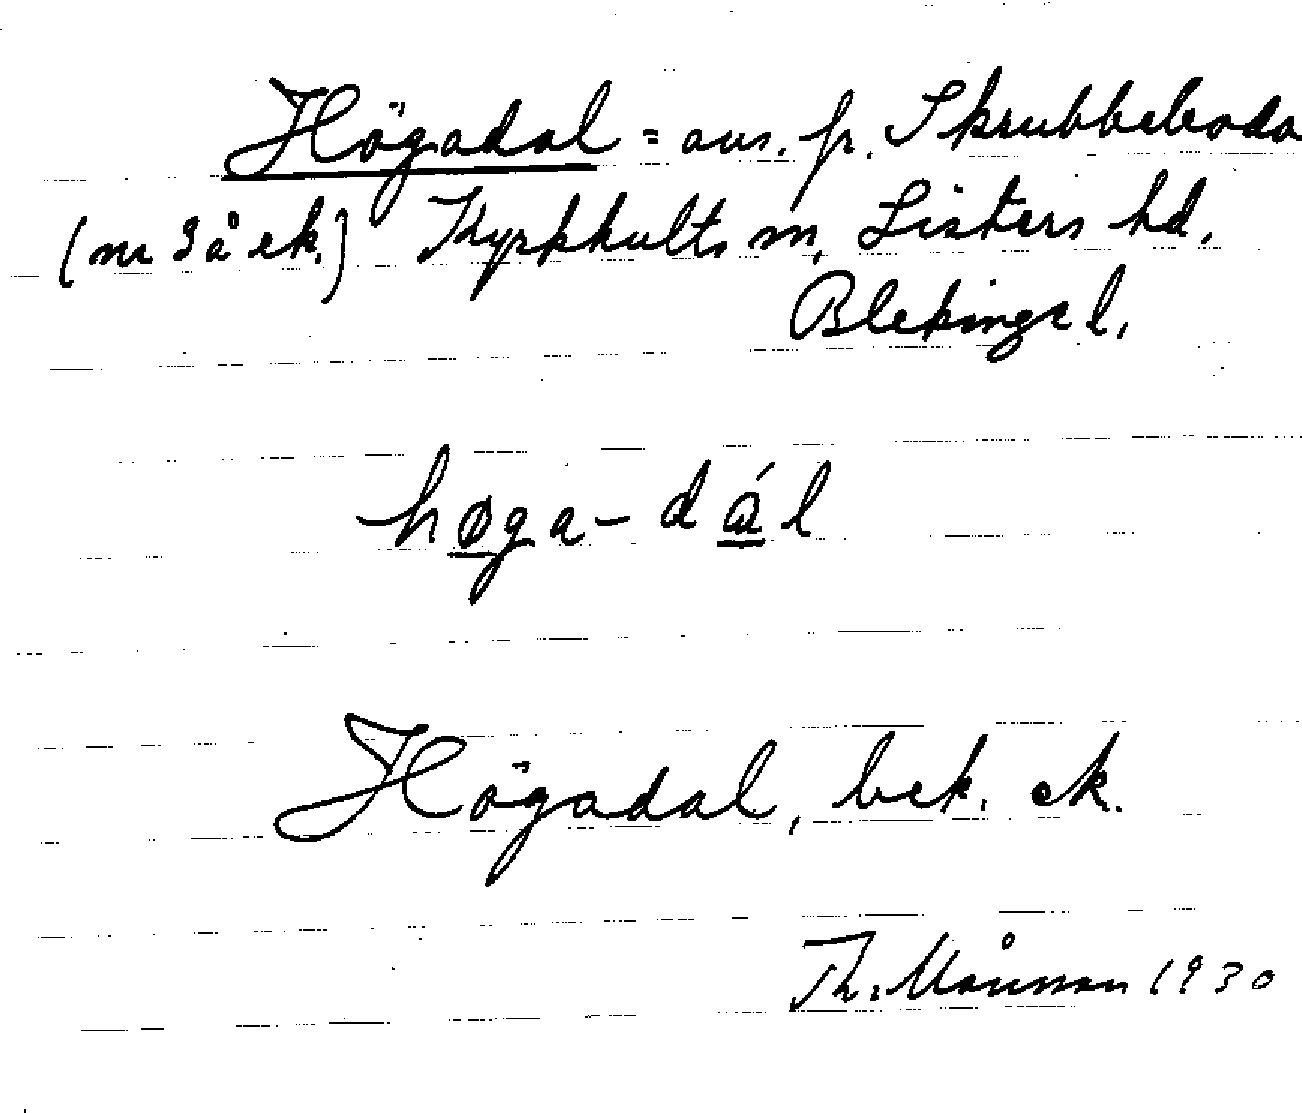 Högadal = avs. fr. Skrubbeboda
(nr 3 å ek.) Kyrkhults sn, Listers hd,
Blekinge l.
høga-dál
Högadal, bek. ek.
Th. Månsson 1930